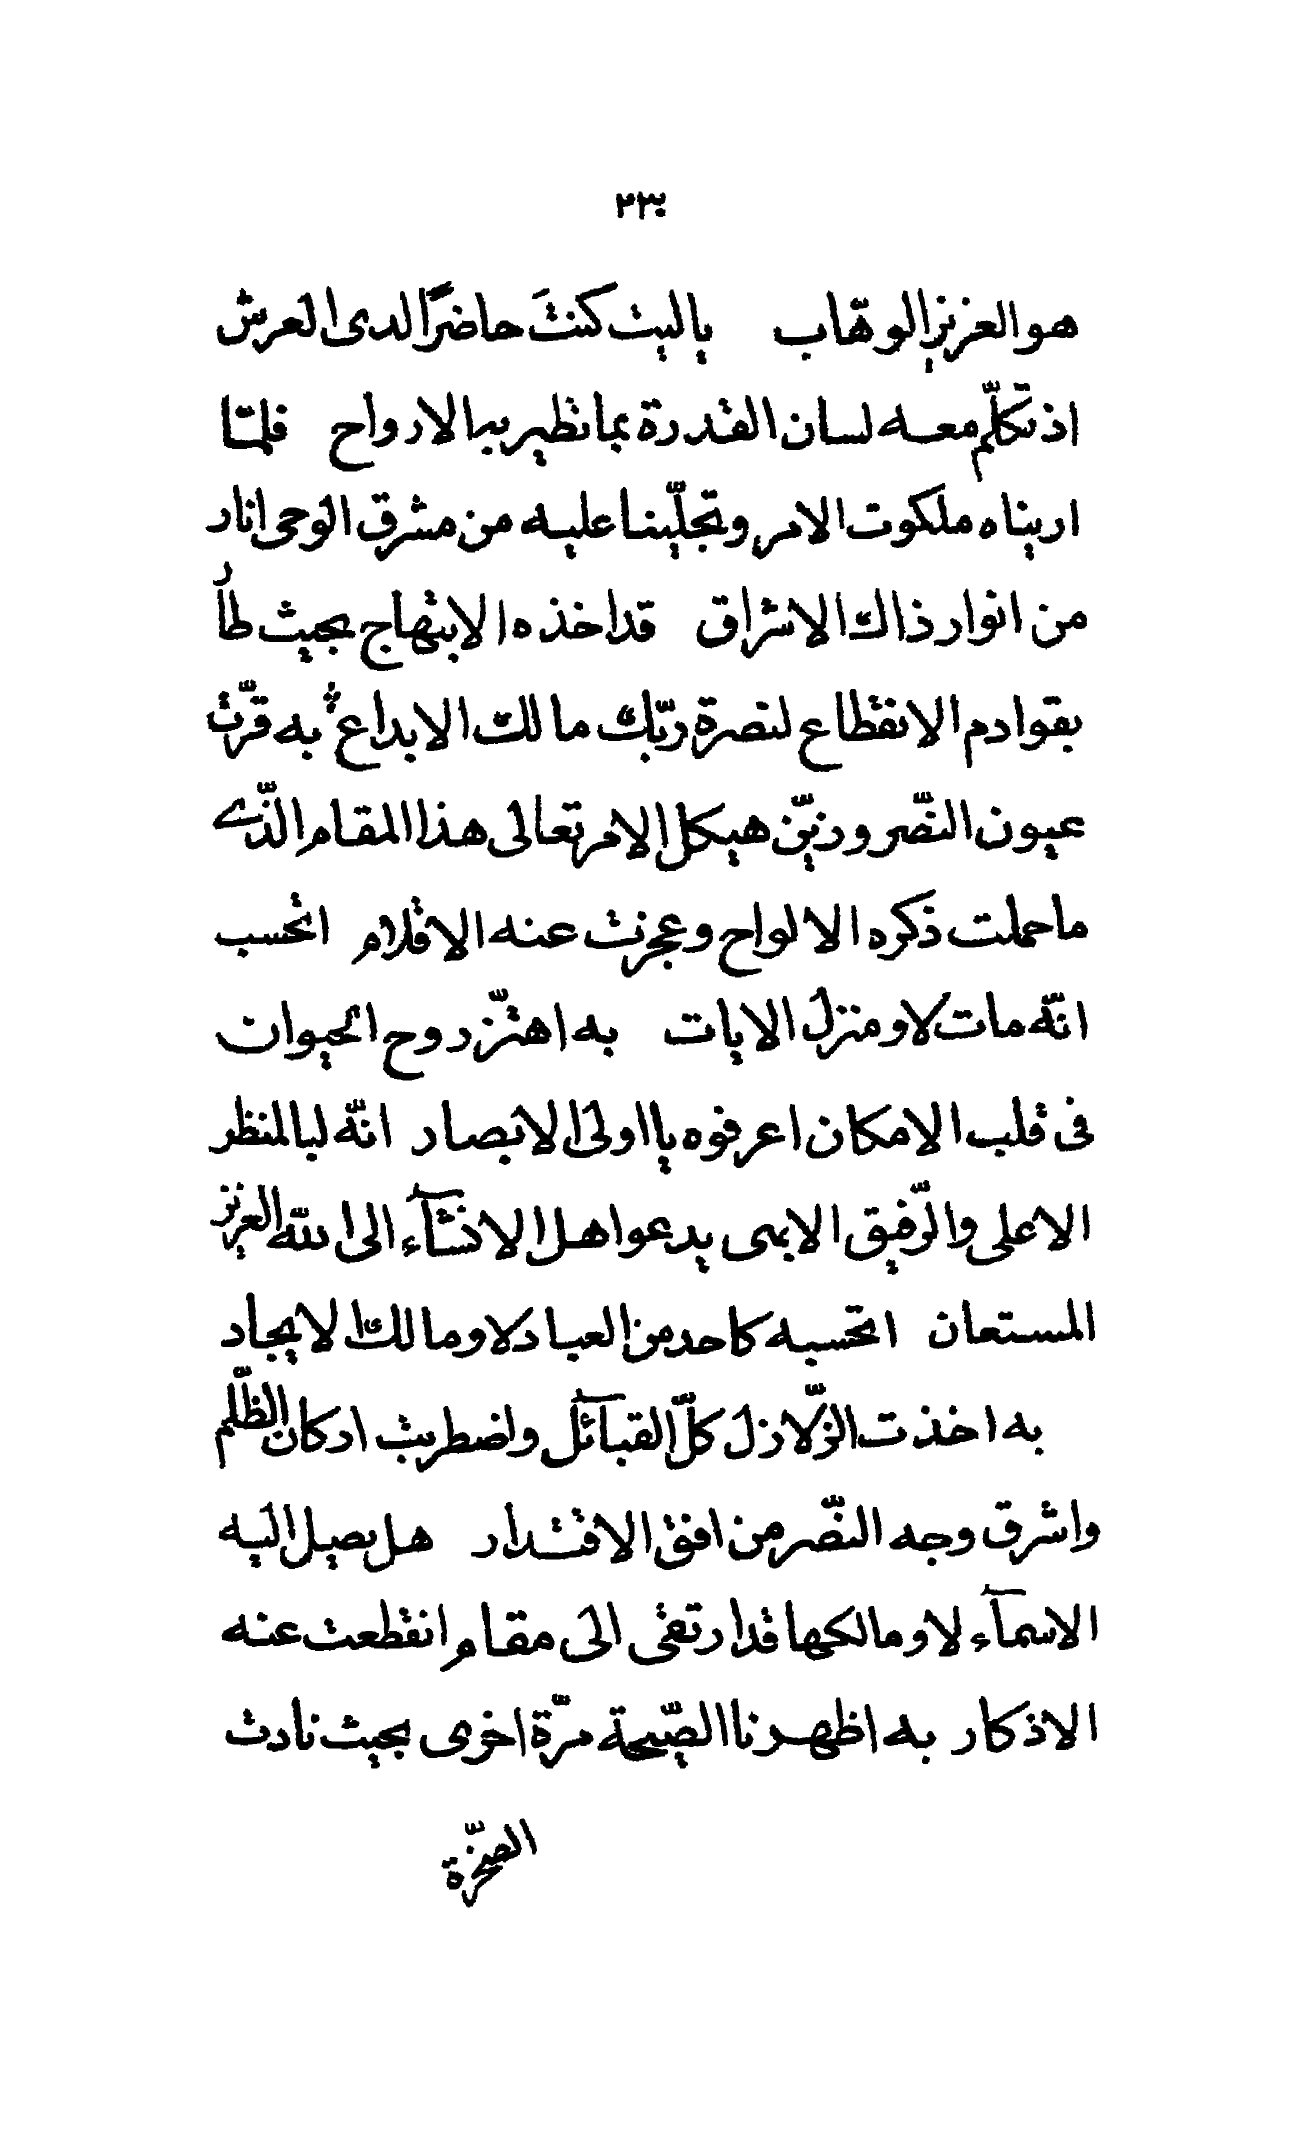 ٢٣٠
هو العزيز الوهّاب ياليت كنتَ حاضرًا لدى العرش
اذ تكلّم معه لسان القدرة بما تطير به الارواح فلمّا
اريناه ملكوت الامر وتجلّينا عليه من مشرق الوحى انار
من انوار ذاك الاشراق قد اخذه الابتهاج بحيث طار
بقوادم الانقطاع لنصرة ربّك مالك الابداع به قرّت
عيون النّصر وزيّن هيكل الامر تعالى هذا المقام الّذى
ما حملت ذكره الالواح وعجزت عنه الاقلام اتحسب
انّه مات لا ومنزل الايات به اهتزّ روح الحيوان
فى قلب الامكان اعرفوه يا اولى الابصار انّه لبالمنظر
الاعلى والرّفيق الابهى يدعوا هل الانشآء الى الله العزيز
المستعان اتحسبه كاحد من العباد لا ومالك الايجاد
به اخذت الزّلازل كلّ القبآئل واضطربت اركان الظّلم
واشرق وجه النّصر من افق الاقتدار هل يصل اليه
الاسمآء لا ومالكها قد ارتقى الى مقام انقطعت عنه
الاذكار به اظهرنا الصّيحة مرّة اخرى بحيث نادت
الصّخرة